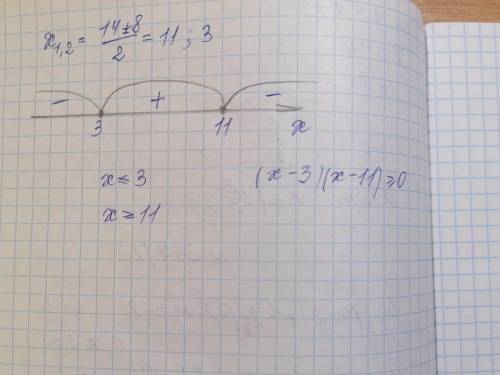 x₁,₂ = (14±8)/2 = 11 ; 3
− + −
3 11 x
x ≤ 3 (x − 3)(x − 11) ≥ 0
x ≥ 11